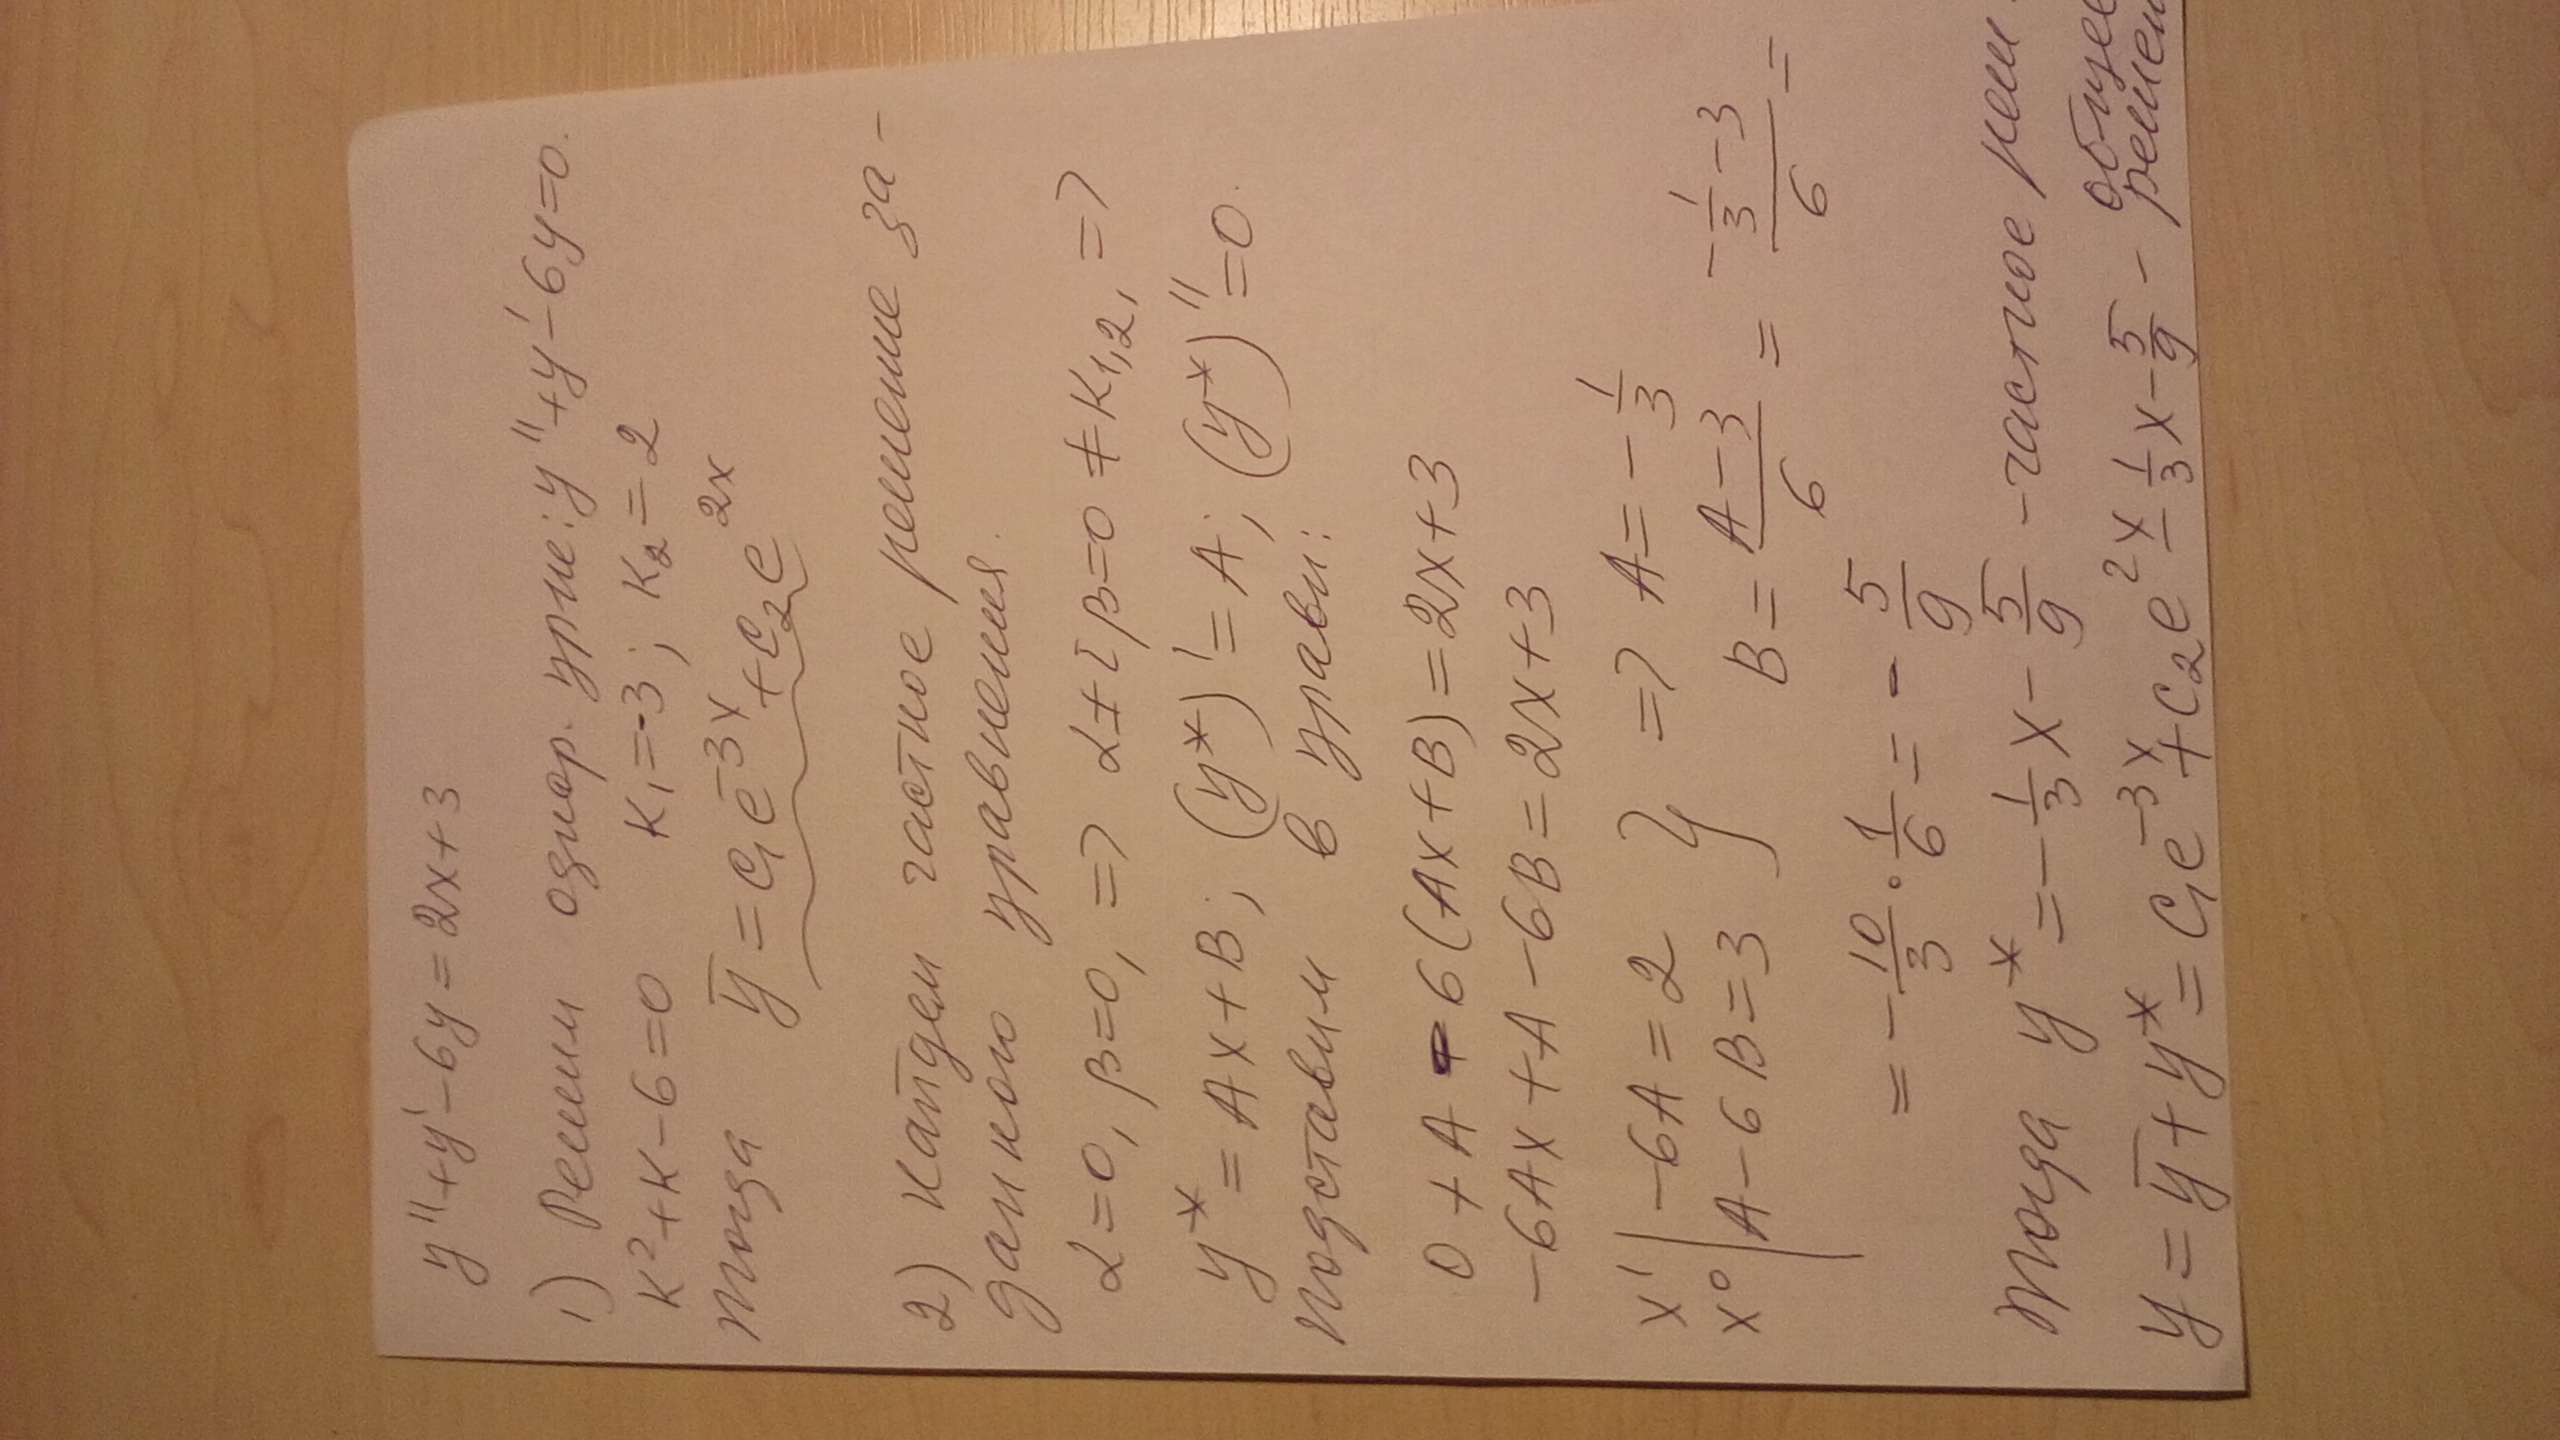 y''+y'-6y=2x+3
1) Решим однор. урние: y''+y'-6y=0.
K²+K-6=0 K₁=-3; K₂=2
тогда ȳ=C₁e⁻³ˣ+C₂e²ˣ
2) Найдем частное решение за-
данного уравнения.
α=0, β=0, => α+iβ=0≠K₁,₂, =>
y*=Ax+B; (y*)'=A; (y*)''=0.
подставим в уравн:
0+A-6(Ax+B)=2x+3
-6Ax+A-6B=2x+3
x¹ | -6A=2 } => A=-1/3
x⁰ | A-6B=3 } B=(A-3)/6=(-1/3-3)/6=
=-10/3·1/6=-5/9
тогда y*=-1/3x-5/9 - частное реш.
y=ȳ+y*=C₁e⁻³ˣ+C₂e²ˣ-1/3x-5/9 - общее
решен